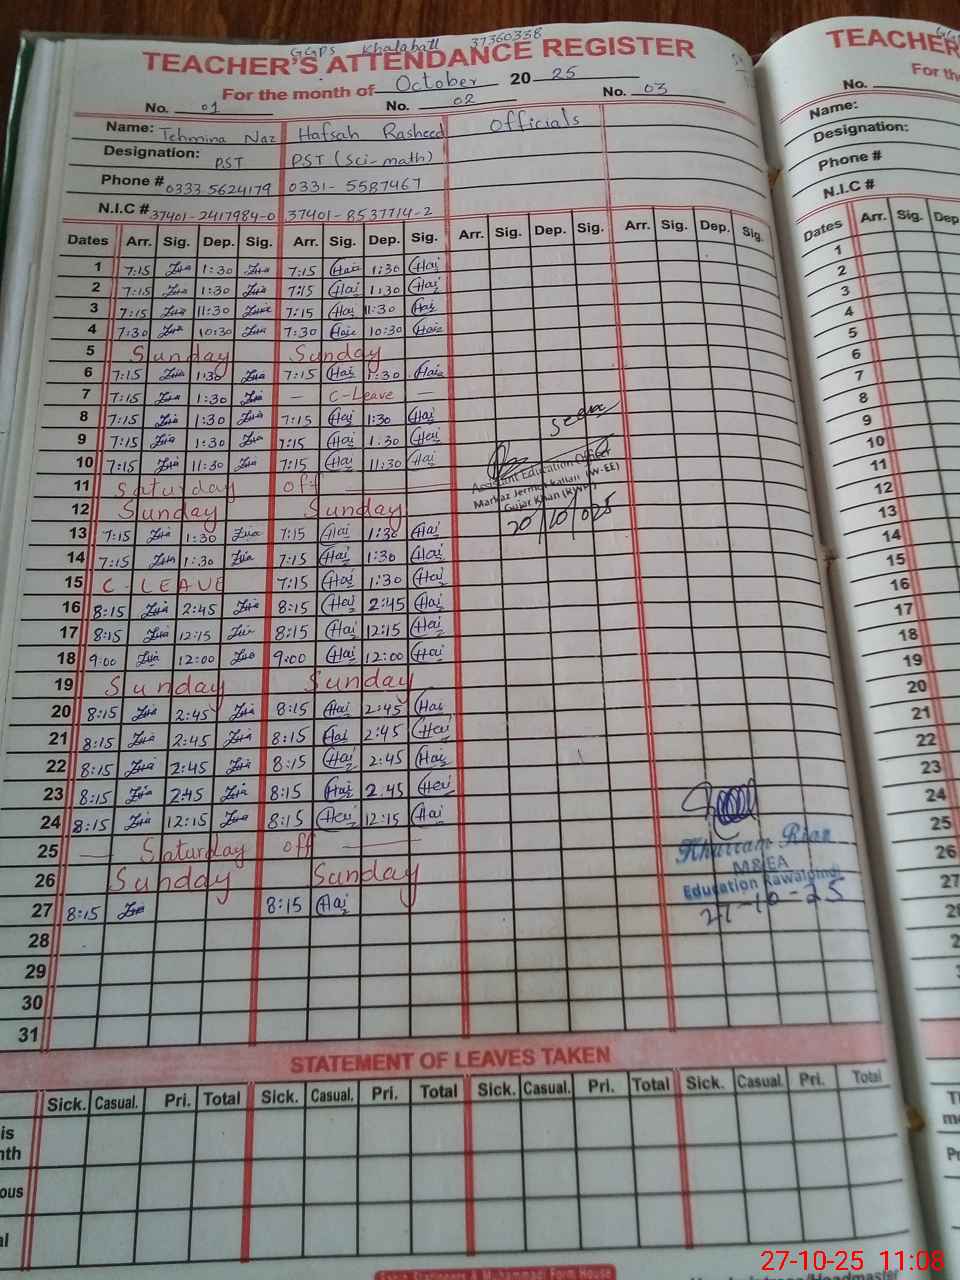 GGPS Khalabatl 37360338
TEACHER'S ATTENDANCE REGISTER
For the month of October 20 25
No. 01 No. 02 No. 03
Name: Tehmina Naz Hafsah Rasheed Officials
Designation: PST PST (Sci-math)
Phone # 0333 5624179 0331-5587467
N.I.C # 37401-2417984-0 37401-8537714-2
Dates Arr. Sig. Dep. Sig. Arr. Sig. Dep. Sig. Arr. Sig. Dep. Sig. Arr. Sig. Dep. Sig.
1 7:15 1:30 7:15 Hai 1:30 Hai
2 7:15 1:30 7:15 Hai 1:30 Hai
3 7:15 11:30 7:15 Hai 11:30 Hai
4 7:30 10:30 7:30 Hai 10:30 Hai
5 Sunday Sunday
6 7:15 1:30 7:15 Hai 1:30 Hai
7 7:15 1:30 — C-Leave —
8 7:15 1:30 7:15 Hai 1:30 Hai
9 7:15 1:30 7:15 Hai 1:30 Hai
10 7:15 11:30 7:15 Hai 11:30 Hai
11 Saturday off
12 Sunday Sunday
13 7:15 1:30 7:15 Hai 1:30 Hai
14 7:15 1:30 7:15 Hai 1:30 Hai
15 C-LEAVE 7:15 Hai 1:30 Hai
16 8:15 2:45 8:15 Hai 2:45 Hai
17 8:15 12:15 8:15 Hai 12:15 Hai
18 9:00 12:00 9:00 Hai 12:00 Hai
19 Sunday Sunday
20 8:15 2:45 8:15 Hai 2:45 Hai
21 8:15 2:45 8:15 Hai 2:45 Hai
22 8:15 2:45 8:15 Hai 2:45 Hai
23 8:15 2:45 8:15 Hai 2:45 Hai
24 8:15 12:15 8:15 Hai 12:15 Hai
25 — Saturday off —
26 Sunday Sunday
27 8:15 8:15 Hai
28
29
30
31
Seen
Assistant Education Officer
Markaz Jermot Kallan (W-EE)
Gujar Khan (RWP)
20/10/025
Khurram Riaz
M&EA
Education Rawalpindi
27-10-25
STATEMENT OF LEAVES TAKEN
Sick. Casual. Pri. Total Sick. Casual. Pri. Total Sick. Casual. Pri. Total Sick. Casual. Pri. Total
is
nth
ous
al
TEACHER
For th
No.
Name:
Designation:
Phone #
N.I.C #
Dates Arr. Sig. Dep
1
2
3
4
5
6
7
8
9
10
11
12
13
14
15
16
17
18
19
20
21
22
23
24
25
26
27
27-10-25 11:08